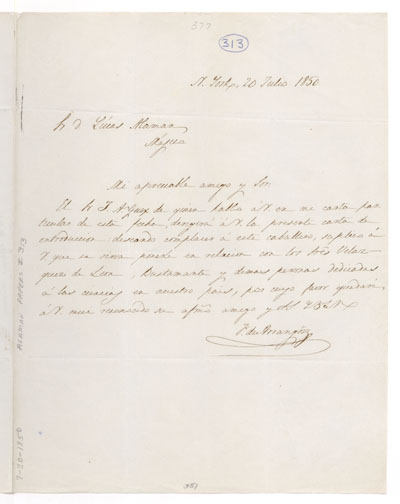 377
313
N. York, 20 Julio 1850
Sr. D. Lucas Alaman
Mégico
Mi apreciable amigo y Sor.
El Sr. J. A. de quien hablo á V. en mi carta par
ticular de esta fecha, á V. la presente carta de
introduccion: deseando complacer á este caballero, suplico á
V. que se sirva ponerle en relacion con los Sres. Velaz
quez de Leon, Bustamante y demas personas dedicadas
á las ciencias en nuestro pais, por cuyo favor quedará
á V. muy reconocido su afmo. amigo y
F. de Arrangoiz
ALAMAN PAPERS # 313
7-20-1850